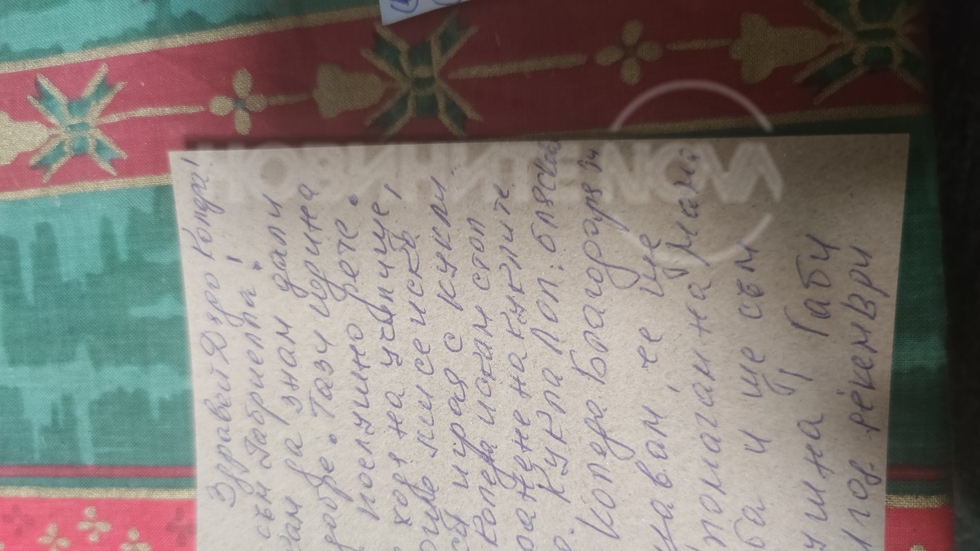 Здравей Дядо Коледа!
съм Габриелла!
кам да знам дали
добре. Тази година
послушно дете.
ходя на училище,
още ми се иска
си играя с кукли.
Коледа искам стол
хранене на куклите
Кукла Лол, бляскав
Коледа. Благодаря ти
щавам, че ще
помагам на мама
ба и ще съм
ушна! Габи
год. декември